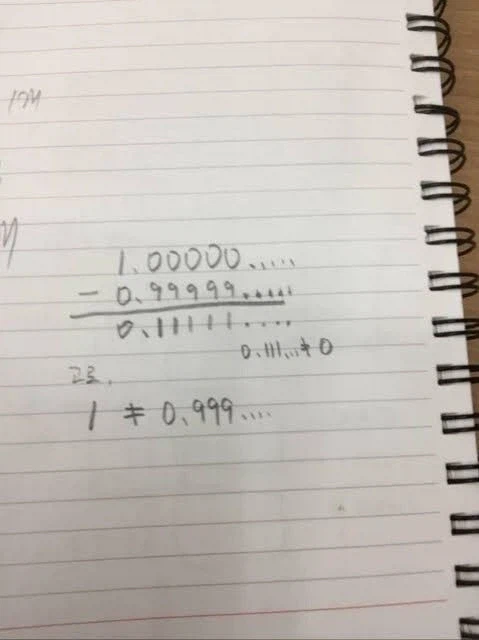 1.00000.....
- 0.99999.....
0.11111....
0.111...≠0
고로.
1 ≠ 0.999....